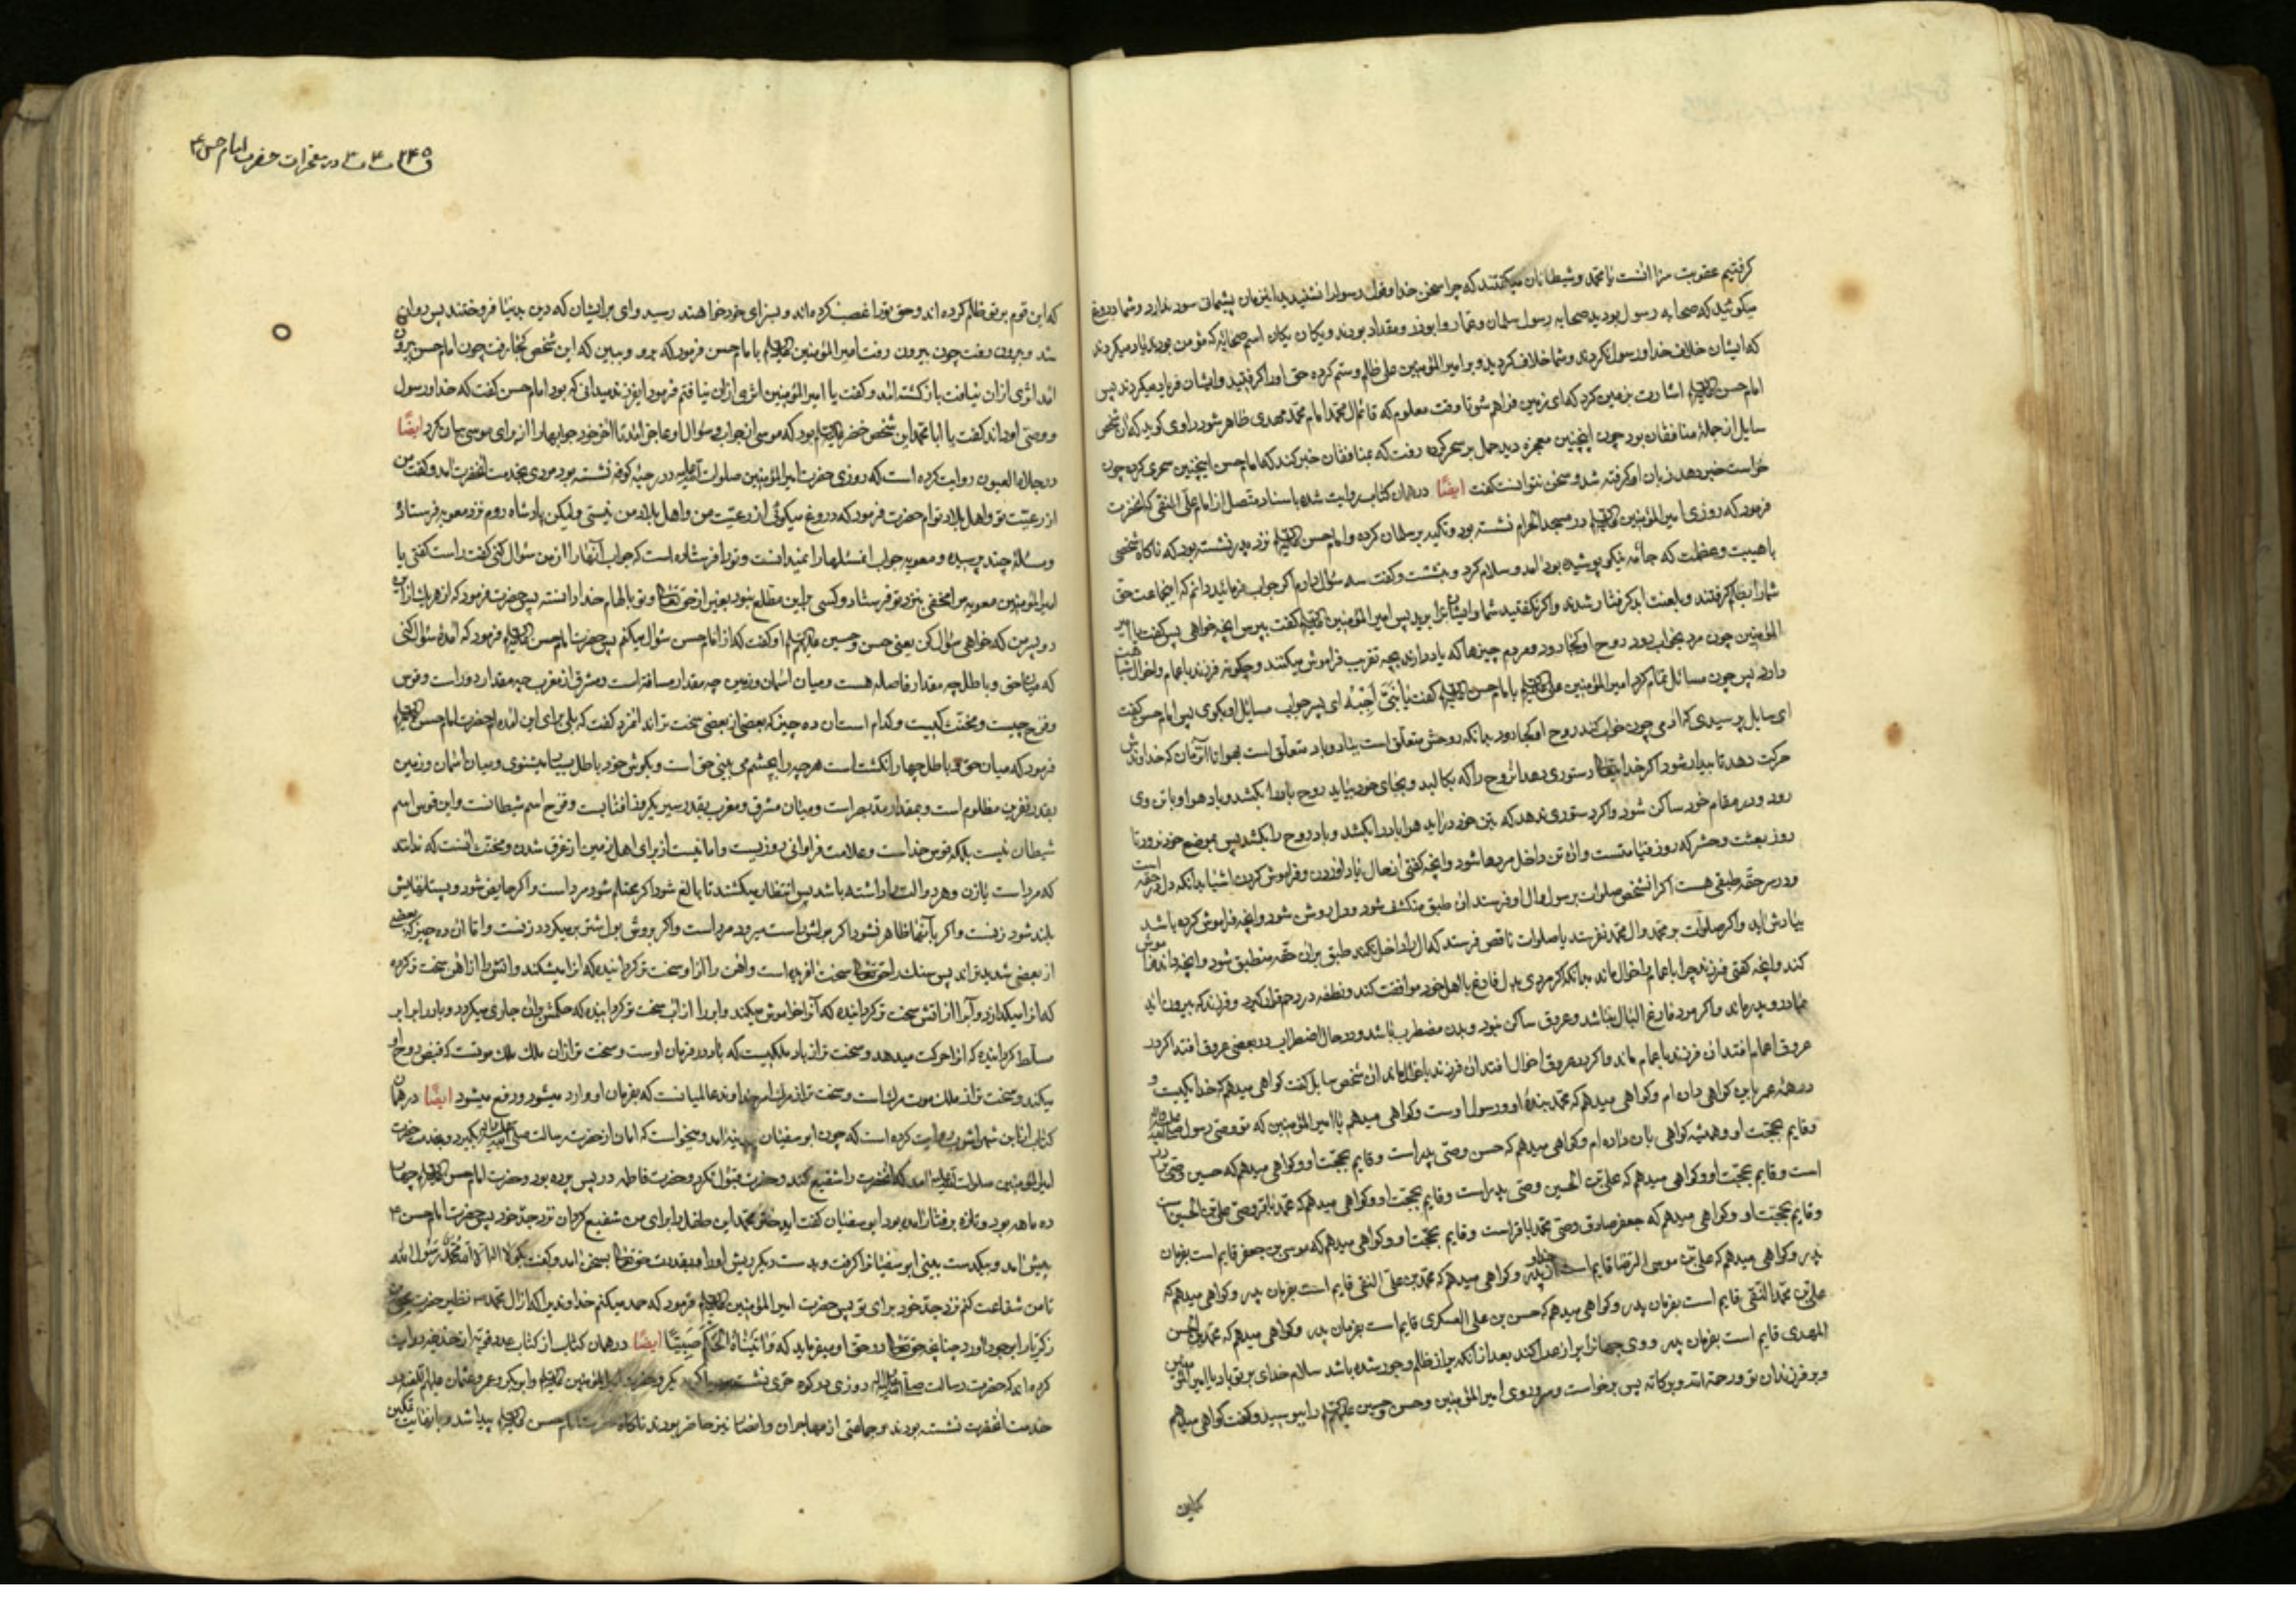 کرفتیم عقوبت سزا اینست یا محمد و شیطانان میکفتند که چرا سخن خدا و قول رسول را نشنیدید این زمان پشیمانی سود ندارد و شما دروغ
میکوئید که صحابه رسول بودید صحابه رسول سلمان و عمار و ابوذر و مقداد بودند و یکان یکان اسم صحابه که مؤمن بودند یاد میکردند
که ایشان خلاف خدا و رسول نکردند و شما خلاف کردید و بر امیرالمؤمنین علی ظلم و ستم کرده حق او را کرفتید و ایشان فریاد میکردند پس
امام حسن اشارت بزمین کرد که ای زمین فراهم شو تا وقت معلوم که قائم آل محمد امام محمد مهدی ظاهر شود راوی کوید که آن شخص
سایل از جمله منافقان بود چون اینچنین معجزه دید حمل بر سحر کرده رفت که بمنافقان خبر کند که امام حسن اینچنین سحری کرده چون
خواست خبر دهد زبان او کرفته شد و سخن نتوانست کفت ایضًا در همان کتاب روایت شده باسناد متصل از امام علی النقی که آنحضرت
فرمود که روزی امیرالمؤمنین در مسجد الحرام نشسته بود و تکیه بر سلمان کرده و امام حسن نزد پدر نشسته بود که ناکاه شخصی
با هیبت و عظمت که جامه نیکو پوشیده بود آمد و سلام کرد و بنشست و کفت سه سؤال دارم اکر جواب فرمائید دانم که اینجماعت حق
شما را بظلم کرفتند و بلعنت ابد کرفتار شدند و اکر نکفتید شما و ایشان برابرید پس امیرالمؤمنین کفت بپرس آنچه خواهی پس کفت یا امیر
المؤمنین چون مرد بخواب رود روح او کجا رود و مردم چیزها که یاد دارند بچه تقریب فراموش میکنند و چکونه فرزند باعمام و اخوال شباهت
دارد پس چون مسائل تمام کرد امیرالمؤمنین علی با امام حسن کفت یا بُنَیَّ اَجِبْهُ ای پسر جواب مسایل او بکوی پس امام حسن کفت
ای سایل پرسیدی که آدمی چون خواب کند روح او کجا رود بدانکه روحش متعلق است بباد و باد متعلق است بهوا تا آن زمان که خداوندش
حرکت دهد تا بیدار شود اکر خدا دستوری دهد آن روح را که بکالبد و بجای خود بیاید روح باد را بکشد و باد هوا را و با تن وی
رود و در مقام خود ساکن شود و اکر دستوری ندهد که بتن خود در آید هوا باد را بکشد و باد روح را بکشد پس بموضع خود نرود تا
روز بعثت و حشر که روز قیامتست و آن تن داخل مردها شود و آنچه کفتی از حال یاد آوردن و فراموش کردن اشیا بدانکه دل در حقه است
و در سر حقه طبقی هست اکر آنشخص صلوات بر رسول و آل او فرستد آن طبق منکشف شود و دل روشن شود و آنچه فراموش کرده باشد
بیادش آید و اکر صلوات بر محمد و آل محمد نفرستد یا صلوات ناقص فرستد که آل را داخل نکند طبق بران حقه منطبق شود و آنچه داند فراموش
کند و آنچه کفتی فرزند چرا باعمام و اخوال ماند بدانکه اکر مردی بدل فارغ با اهل خود مواقعت کند و نطفه در رحم قرار کیرد و فرزند که بیرون آید
بمادر و پدر ماند و اکر مرد فارغ البال نباشد و عروق ساکن نبود و بدن مضطرب باشد و در حال اضطراب در بعضی عروق افتد اکر در
عروق اعمام افتد آن فرزند باعمام ماند و اکر در عروق اخوال افتد آن فرزند باخوال ماند آن شخص سایل کفت کواهی میدهم که خدا یکیست و
در همه عمر باین کواهی دان ام و کواهی میدهم که محمد بنده او و رسول اوست و کواهی میدهم یا امیرالمؤمنین که تو وصی رسول
و قایم بحجت او و همیشه کواهی بان داده ام و کواهی میدهم که حسن وصی پدر است و قایم بحجت او و کواهی میدهم که حسین وصی برادر
است و قایم بحجت او و کواهی میدهم که علی بن الحسین وصی پدر است و قایم بحجت او و کواهی میدهم که محمد باقر وصی علی بن الحسین است
و قایم بحجت او و کواهی میدهم که جعفر صادق وصی محمد باقر است و قایم بحجت او و کواهی میدهم که موسی بن جعفر قایم است بفرمان
پدر و کواهی میدهم که علی بن موسی الرضا قایم است از پدر و کواهی میدهم که محمد بن علی التقی قایم است بفرمان پدر و کواهی میدهم که
علی بن محمد النقی قایم است بفرمان پدر و کواهی میدهم که حسن بن علی العسکری قایم است بفرمان پدر و کواهی میدهم که محمد بن الحسن
المهدی قایم است بفرمان پدر و وی جهانرا پر از عدل کند بعد از آنکه پر از ظلم و جور شده باشد سلام خدای بر تو باد یا امیرالمؤمنین
و بر فرزندان تو و رحمة الله و برکاته پس برخواست و سر و روی امیرالمؤمنین و حسن و حسین را ببوسید و کفت کواهی میدهم
که این قوم بر تو ظلم کرده اند و حق تو را غصب کرده اند و بسزای خود خواهند رسید وای بر ایشان که دین بدنیا فروختند پس روان
شد و بیرون رفت چون بیرون رفت امیرالمؤمنین با امام حسن فرمود که برو و ببین که این شخص کجا رفت چون امام حسن بیرون
آمد اثری ازان نیافت باز کشته آمد و کفت یا امیرالمؤمنین اثری ازان نیافتم فرمود ای فرزند میدانی که بود امام حسن کفت که خدا و رسول
و وصی او داند کفت یا ابا محمد این شخص خضر بود که موسی از جواب و سؤال او عاجز آمد تا آخر خود جوابها را از برای موسی بیان کرد ایضًا
در جلاء العیون روایت کرده است که روزی حضرت امیرالمؤمنین صلوات الله علیه در رحبه کوفه نشسته بود مردی بخدمت آنحضرت آمد و کفت من
از رعیت تو و اهل بلاد توام حضرت فرمود که دروغ میکوئی از رعیت من و اهل بلاد من نیستی ولیکن پادشاه روم نزد معویه فرستاد
و مسئله چند پرسیده و معویه جواب آن مسئلها را نمیدانست و تو را فرستاده است که جواب آنها را از من سؤال کنی کفت راست کفتی یا
امیرالمؤمنین معویه مرا مخفی بنزد تو فرستاد و کسی بر این مطلع نبود بغیر از حق تعالی و تو بالهام خدا دانستی پس حضرت فرمود که از هر یک از این
دو پسر من که خواهی سؤال کن یعنی حسن و حسین او کفت که از امام حسن سؤال میکنم پس حضرت امام حسن فرمود که آمده سؤال کنی
که میان حق و باطل چه مقدار فاصله هست و میان آسمان و زمین چه مقدار مسافة است و مشرق از مغرب چه مقدار دور است و قوس
و قزح چیست و مخنث کیست و کدام است آن ده چیز که بعضی از بعضی سخت تراند آنمرد کفت که بلی برای این آمده ام حضرت امام حسن
فرمود که میان حق و باطل چهار انکشت است هر چه را بچشم می بینی حق است و بکوش خود باطل بسیار میشنوی و میان آسمان و زمین
بقدر نفرین مظلوم است و بمقدار مد بصر است و میان مشرق و مغرب بقدر سیر یکروز آفتابست و قزح اسم شیطانست و این قوس اسم
شیطان نیست بلکه قوس خداست و علامت فراوانی روزیست و امانیست از برای اهل زمین از غرق شدن و مخنث آنست که ندانند
که مرد است یا زن و هر دو آلت را داشته باشد پس انتظار میکشند تا بالغ شود اکر محتلم شود مرد است و اکر حایض شود و پستانهایش
بلند شود زنست و اکر باینها ظاهر نشود اکر بولش راست میرود مرد است و اکر بروش بول شتر برمیکردد زنست و اما آن ده چیز که بعضی
از بعضی شدیدتراند پس سنک را حق تعالی سخت آفریده است و آهن را از او سخت تر کردانیده که آنرا میشکند و آتش را از آهن سخت تر کرده
که آنرا میکدازد و آب را از آتش سخت تر کردانیده که آنرا خاموش میکند و ابر را از آب سخت تر کردانیده که حکمش بران جاری میکردد و باد را بر ابر
مسلط کردانیده که آنرا حرکت میدهد و سخت تر از باد ملکیست که باد در فرمان اوست و سخت تر از آن ملک ملک موتست که قبض روح او
میکند و سخت تر از ملک موت مرک است و سخت تر از مرک امر خداوند عالمیانست که بفرمان او وارد میشود و رفع میشود ایضًا در همان
کتاب از ابن شهر آشوب روایت کرده است که چون ابو سفیان بمدینه آمد و میخواست که امان از حضرت رسالت بکیرد و بخدمت حضرت
امیرالمؤمنین صلوات الله علیه آمد که آنحضرت را شفیع کند و حضرت قبول نکرد و حضرت فاطمه در پس پرده بود و حضرت امام حسن چهار
ده ماهه بود و تازه برفتار آمده بود ابو سفیان کفت ای دختر محمد این طفل را برای من شفیع کردان نزد جد خود پس حضرت امام حسن ع
پیش آمد و بیکدست بینی ابو سفیانرا کرفت و بدست دیکر ریش او را و بقدرت حق تعالی بسخن آمد و کفت بکو لا اله الا الله محمد رسول الله
تا من شفاعت کنم نزد جد خود برای تو پس حضرت امیرالمؤمنین فرمود که حمد میکنم خداوندیرا که از آل محمد نظیر حضرت یحیی بن
زکریا را بوجود آورد چنانچه حق تعالی در حق او میفرماید که وَآتَیْنَاهُ الْحُکْمَ صَبِیًّا ایضًا در همان کتاب از کتاب عدد قویه از حذیفه روایت
کرده اند که حضرت رسالت روزی در کوه حری نشسته و امیرالمؤمنین و ابوبکر و عمر و عثمان
خدمت آنحضرت نشسته بودند و جماعتی از مهاجران و انصار نیز حاضر بودند ناکاه حضرت امام حسن پیدا شد و با نهایت تمکین
در معجزات حضرت امام حسن ع